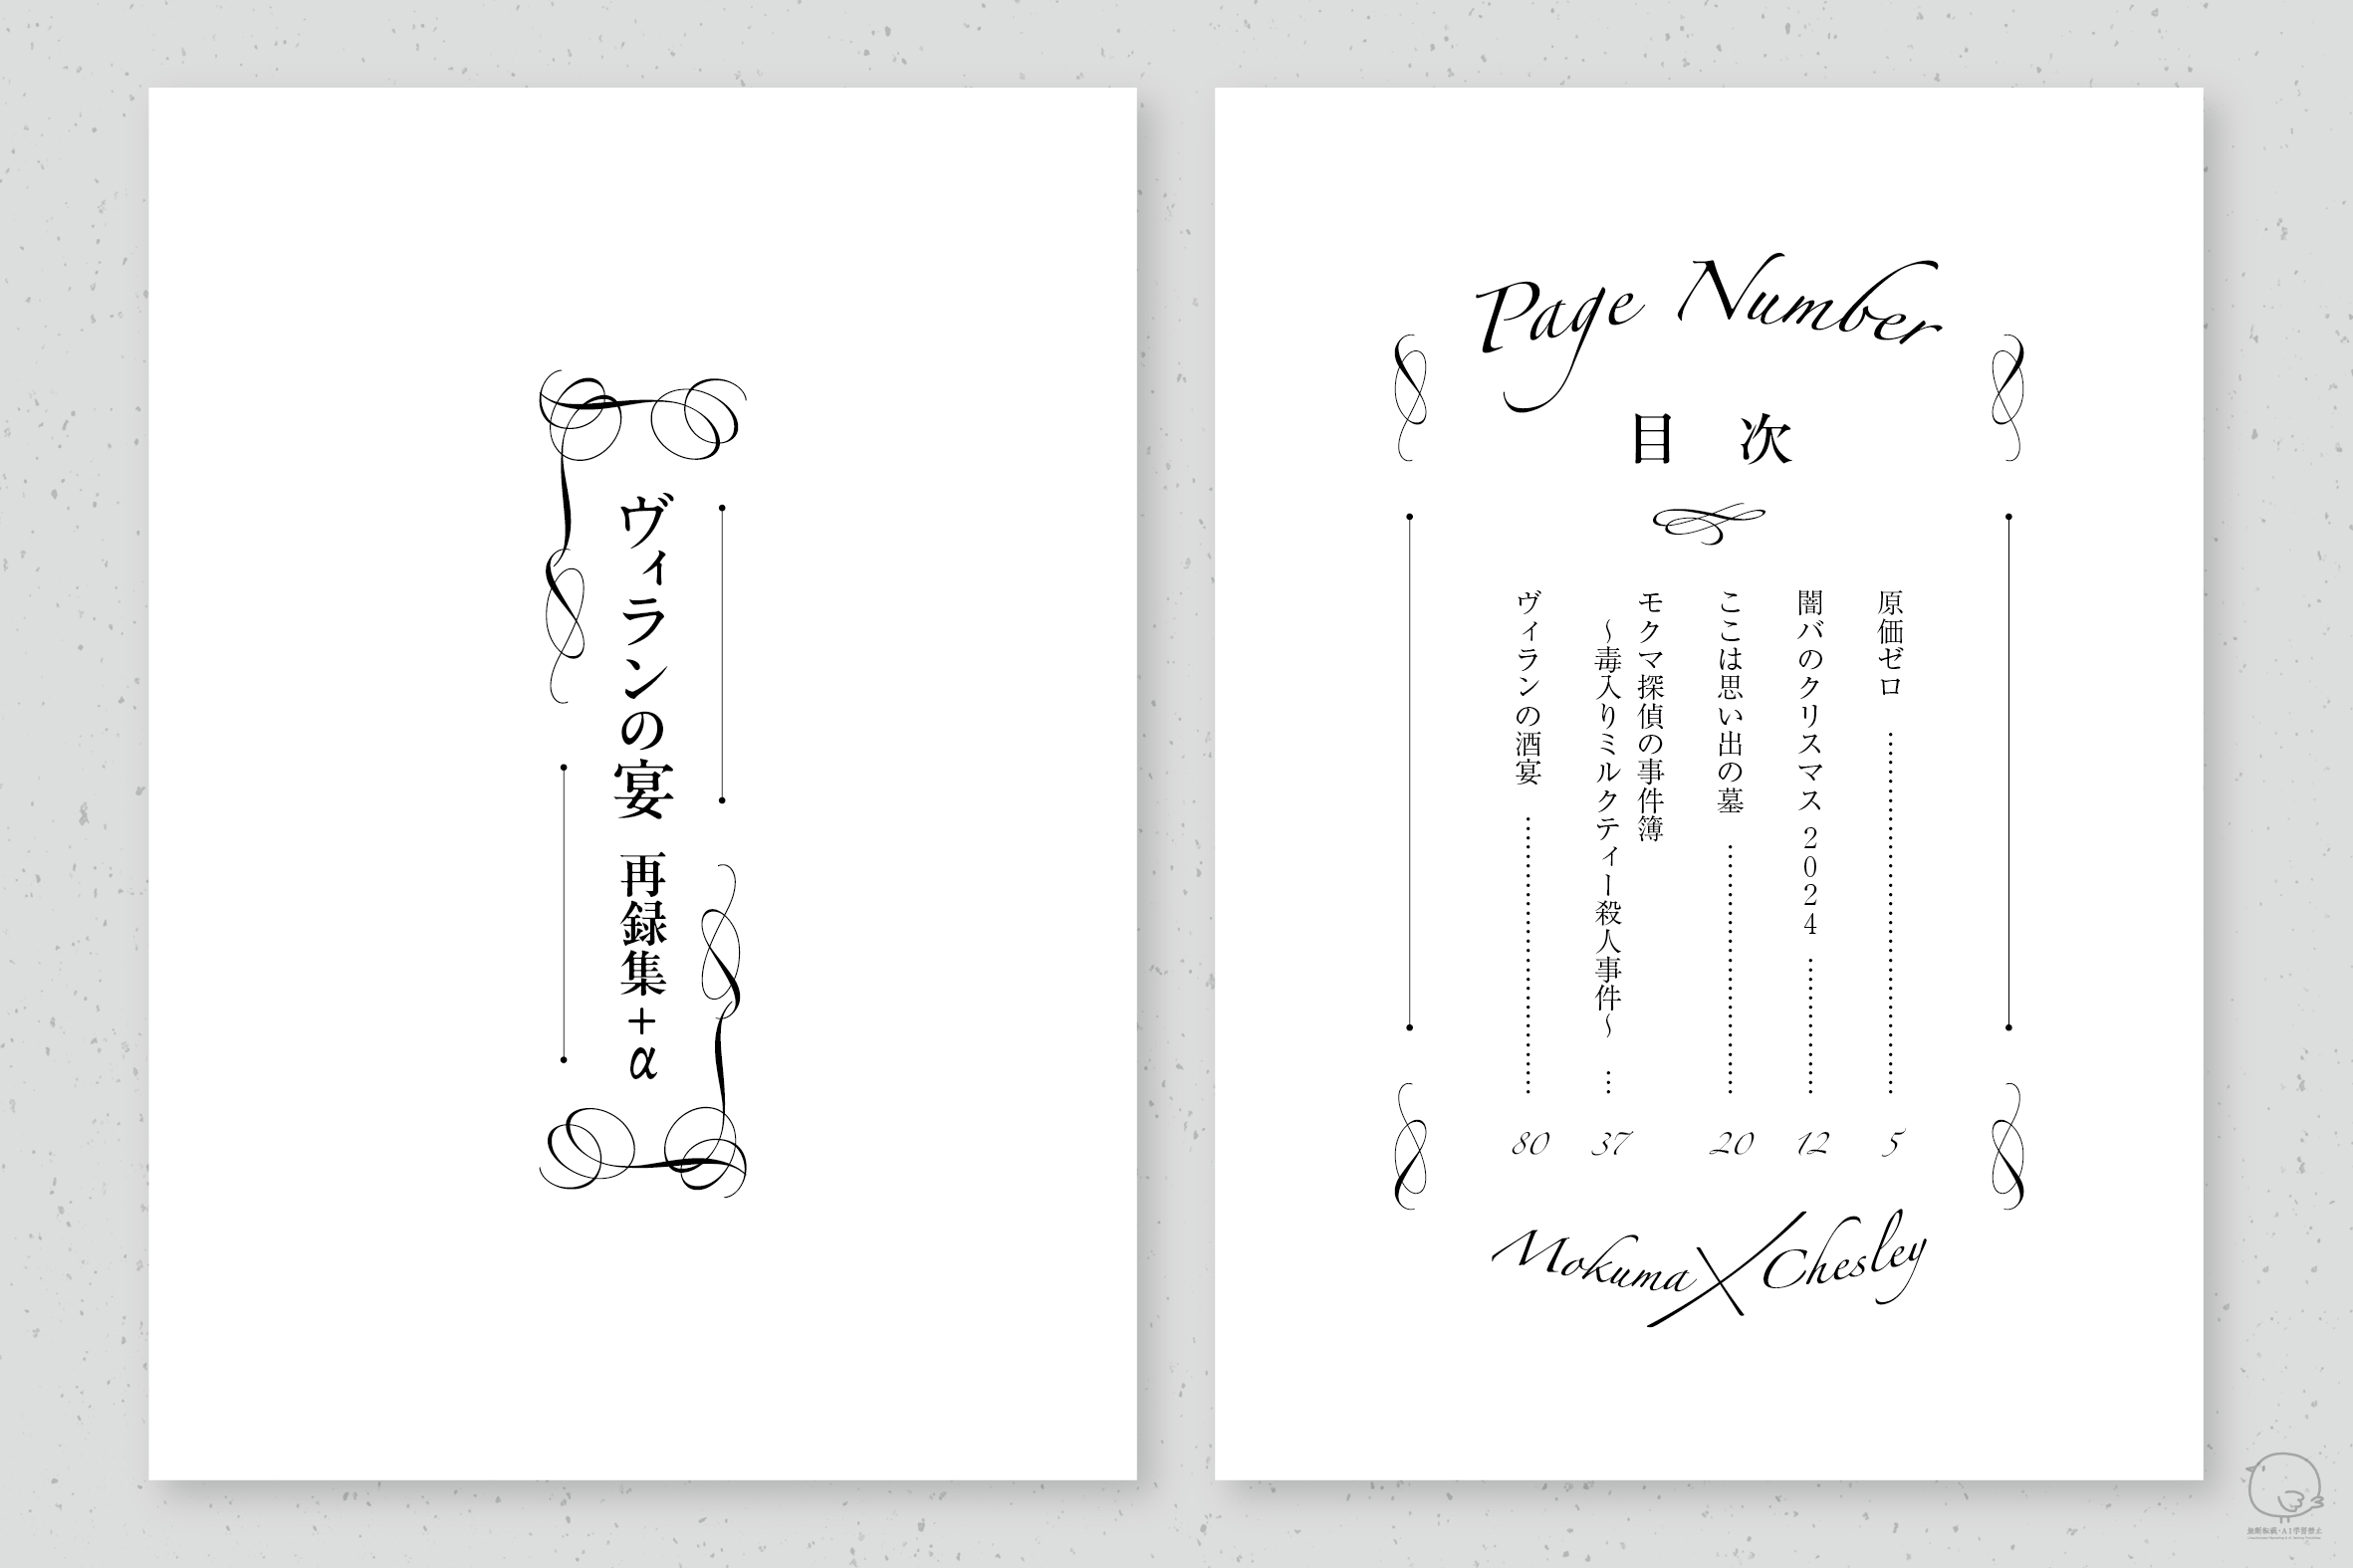 ヴィランの宴 再録集+α
Page Number
目次
原価ゼロ …… 5
闇バのクリスマス 2024 …… 12
ここは思い出の墓 …… 20
モクマ探偵の事件簿
~毒入りミルクティー殺人事件~ … 37
ヴィランの酒宴 …… 80
Mokuma X Chesley
無断転載・AI学習禁止